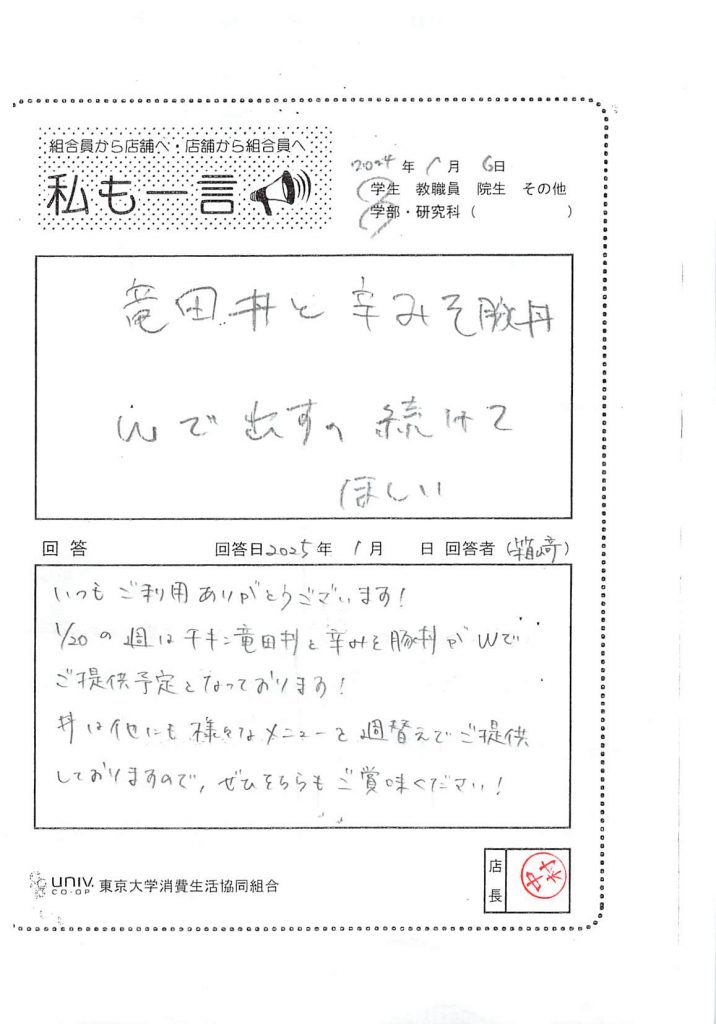 組合員から店舗へ・店舗から組合員へ
私も一言
2024年 1月 6日
学生 教職員 院生 その他
学部・研究科（ ）
竜田丼と辛みそ豚丼
Wで出すの続けて
ほしい
回答 回答日2025年 1月 日 回答者（箱﨑）
いつもご利用ありがとうございます！
1/20の週はチキン竜田丼と辛みそ豚丼がWで
ご提供予定となっております！
丼は他にも様々なメニューを週替えでご提供
しておりますので、ぜひそちらもご賞味ください！
UNIV. CO-OP 東京大学消費生活協同組合
店長
中村